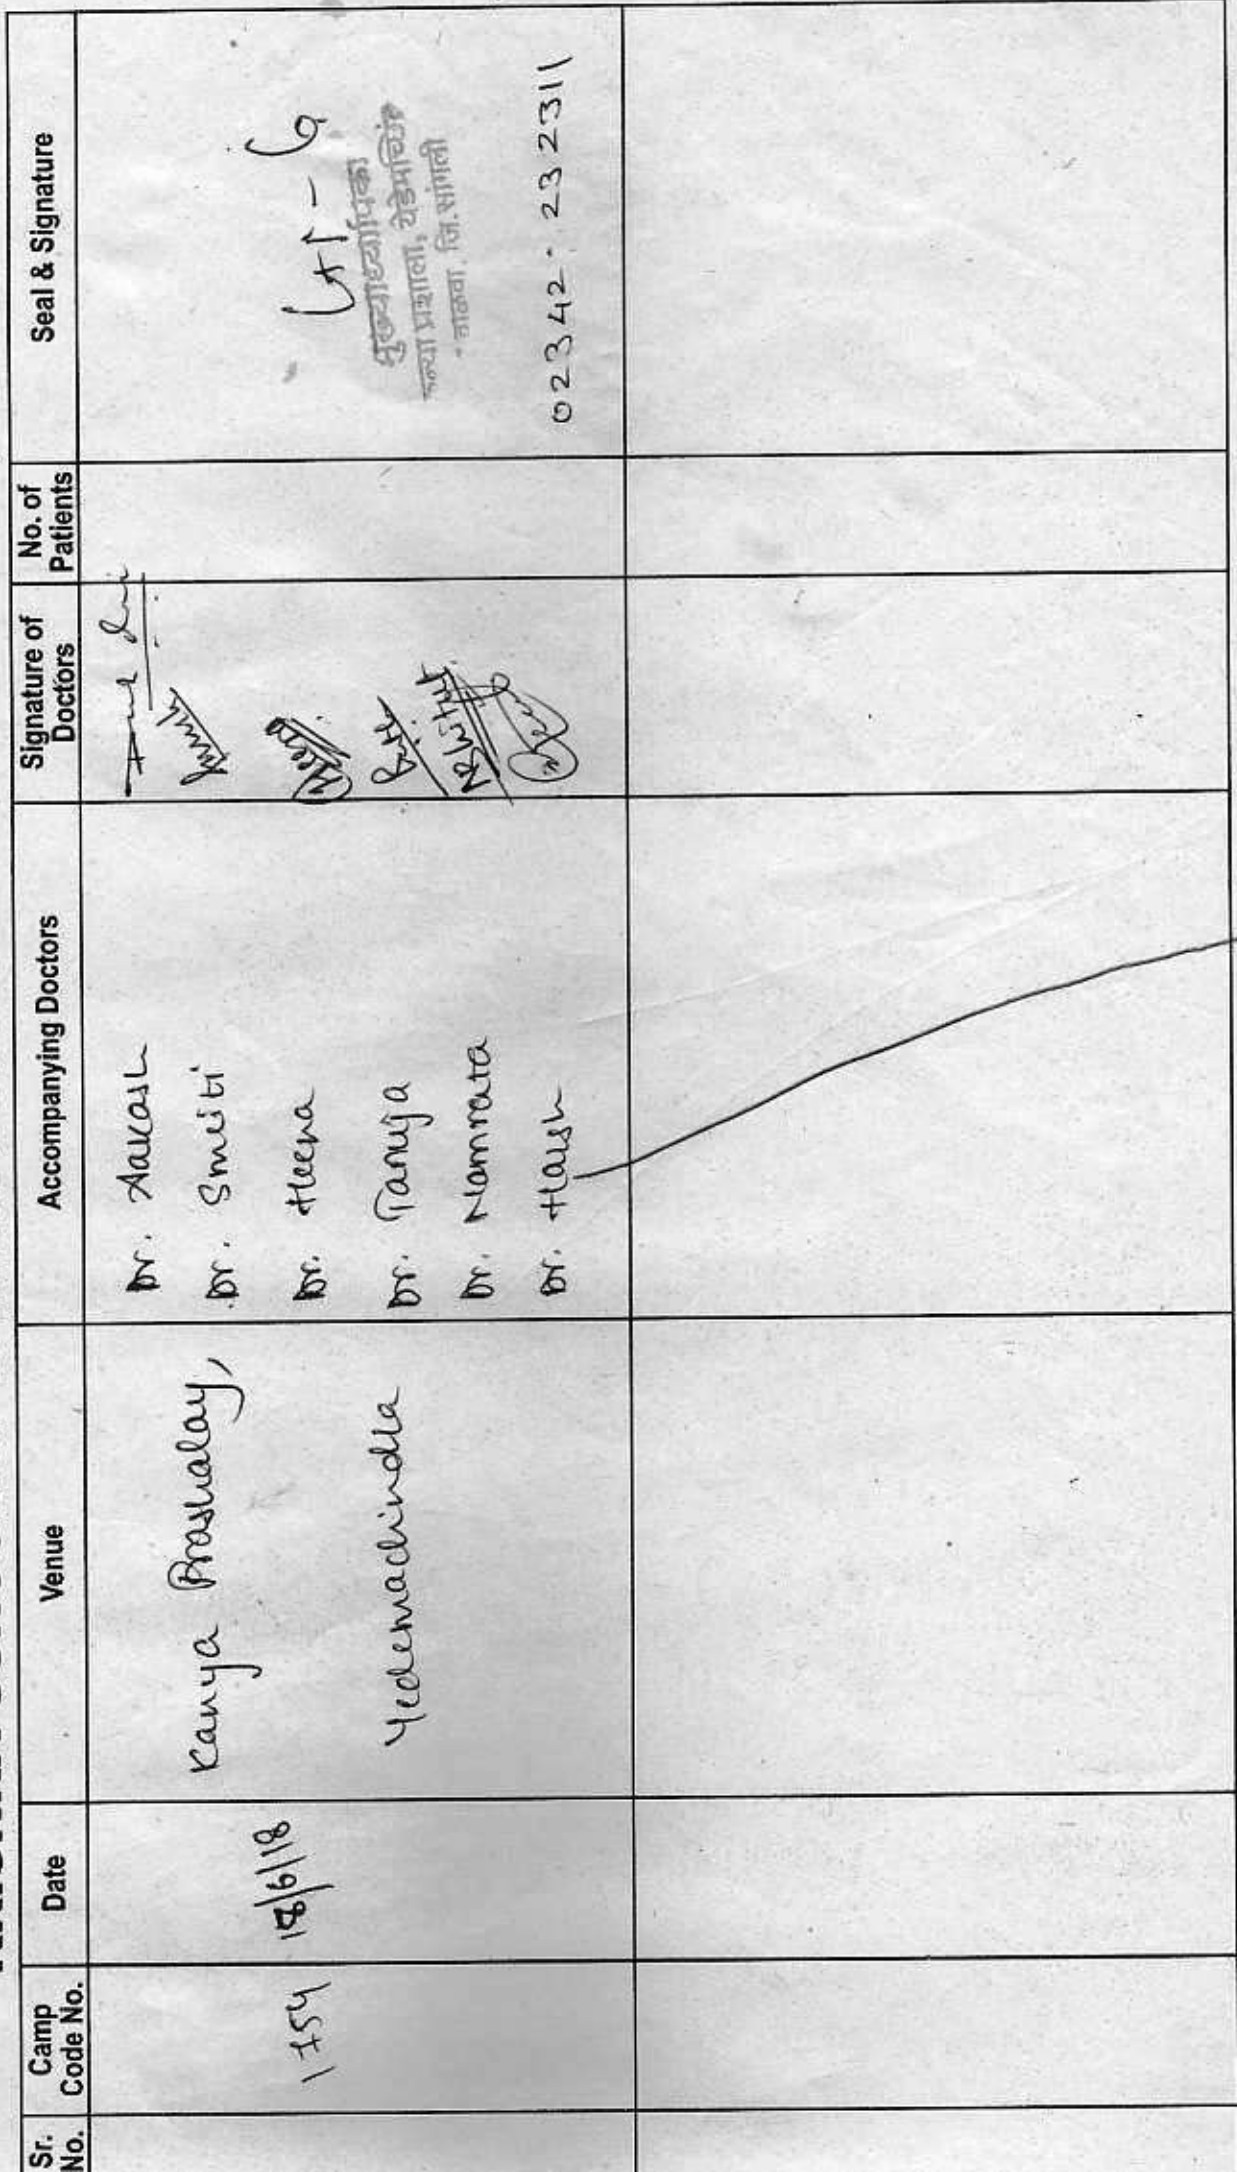 Sr. No.
Camp Code No.
Date
Venue
Accompanying Doctors
Signature of Doctors
No. of Patients
Seal & Signature
1754
18/6/18
Kanya Prashalay,
Yedemachindla
Dr. Aakash
Dr. Smriti
Dr. Heena
Dr. Tanuja
Dr. Namrata
Dr. Harsh
Heena
मुख्याध्यापिका
कन्या प्रशाला, येडेमच्छिंद्र
वाळवा, जि. सांगली
02342 232311